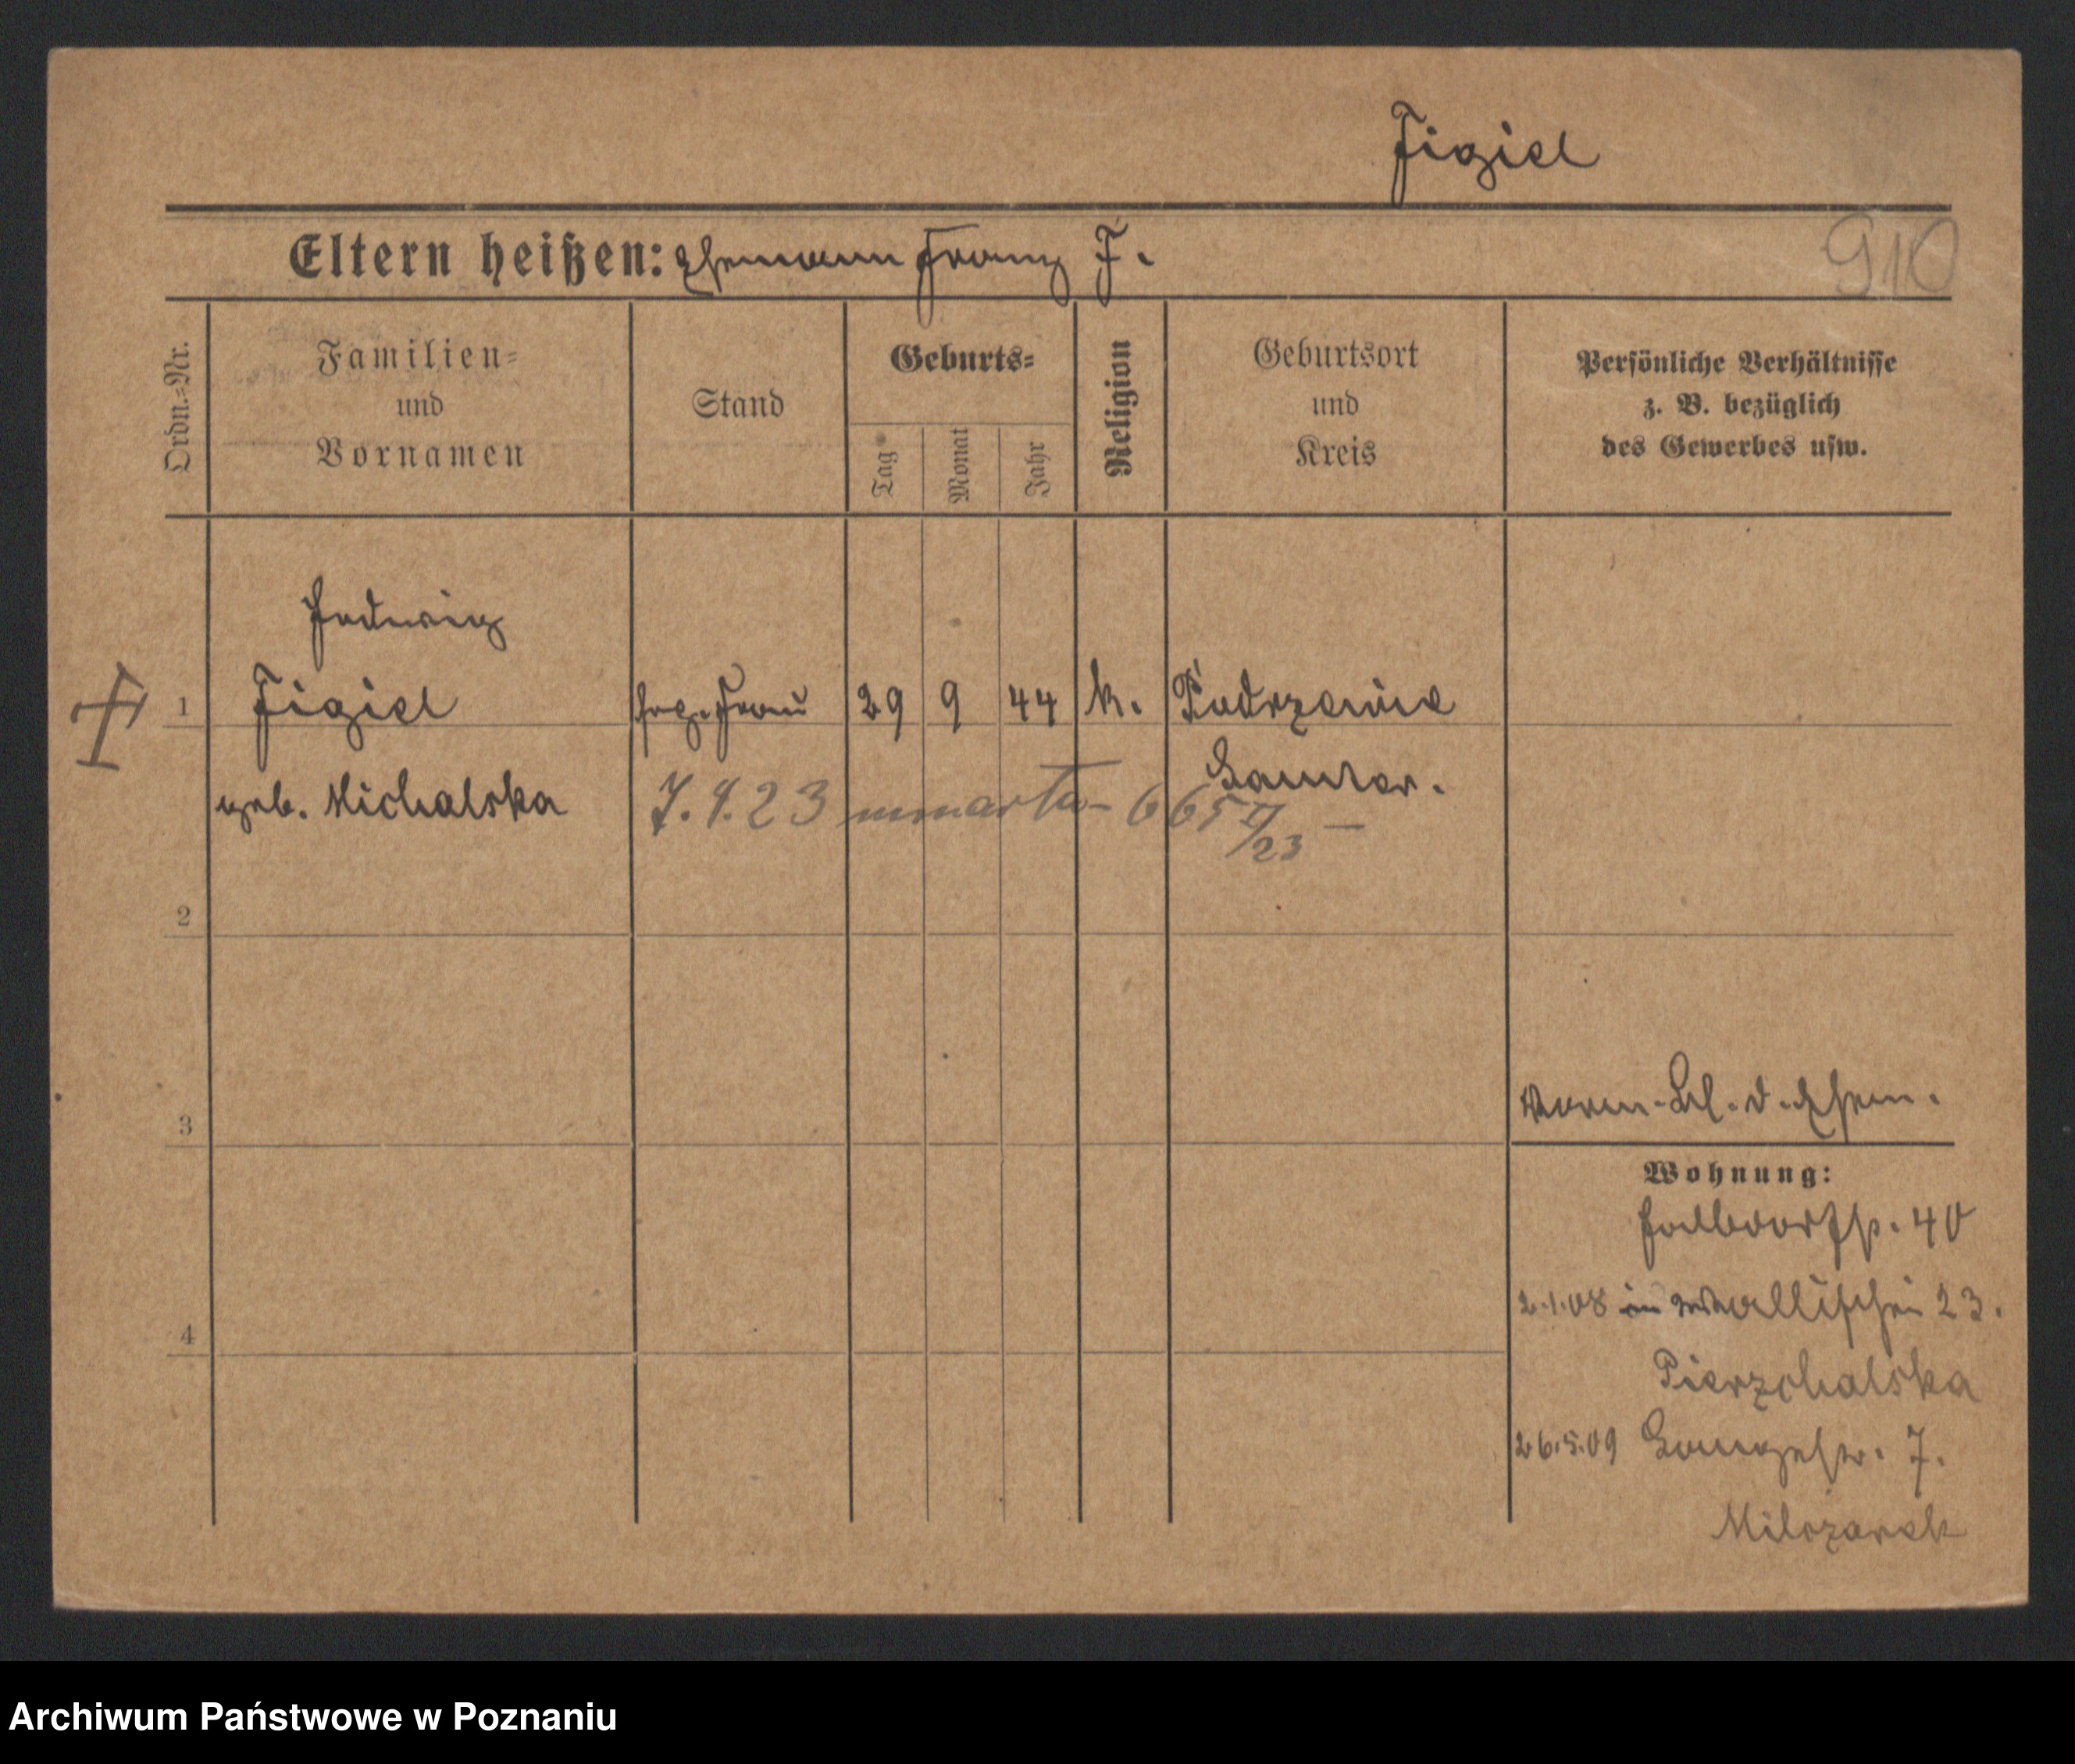 Figiel
Eltern heißen: Ehemann Franz F.
910
Ordn.=Nr.
Familien=
und
Vornamen
Stand
Geburts=
Tag
Monat
Jahr
Religion
Geburtsort
und
Kreis
Persönliche Verhältnisse
z. B. bezüglich
des Gewerbes usw.
Hedwig
1 Figiel Frau 29 9 44 k.
geb. Michalska
Samter.
7.9.23 umarła 665 II/23 -
2
3
4
Wohnung:
Halbdorfstr. 40
2.1.08 Wallischei 23.
Pierzchalska
26.5.09 7.
Milczarek
Archiwum Państwowe w Poznaniu